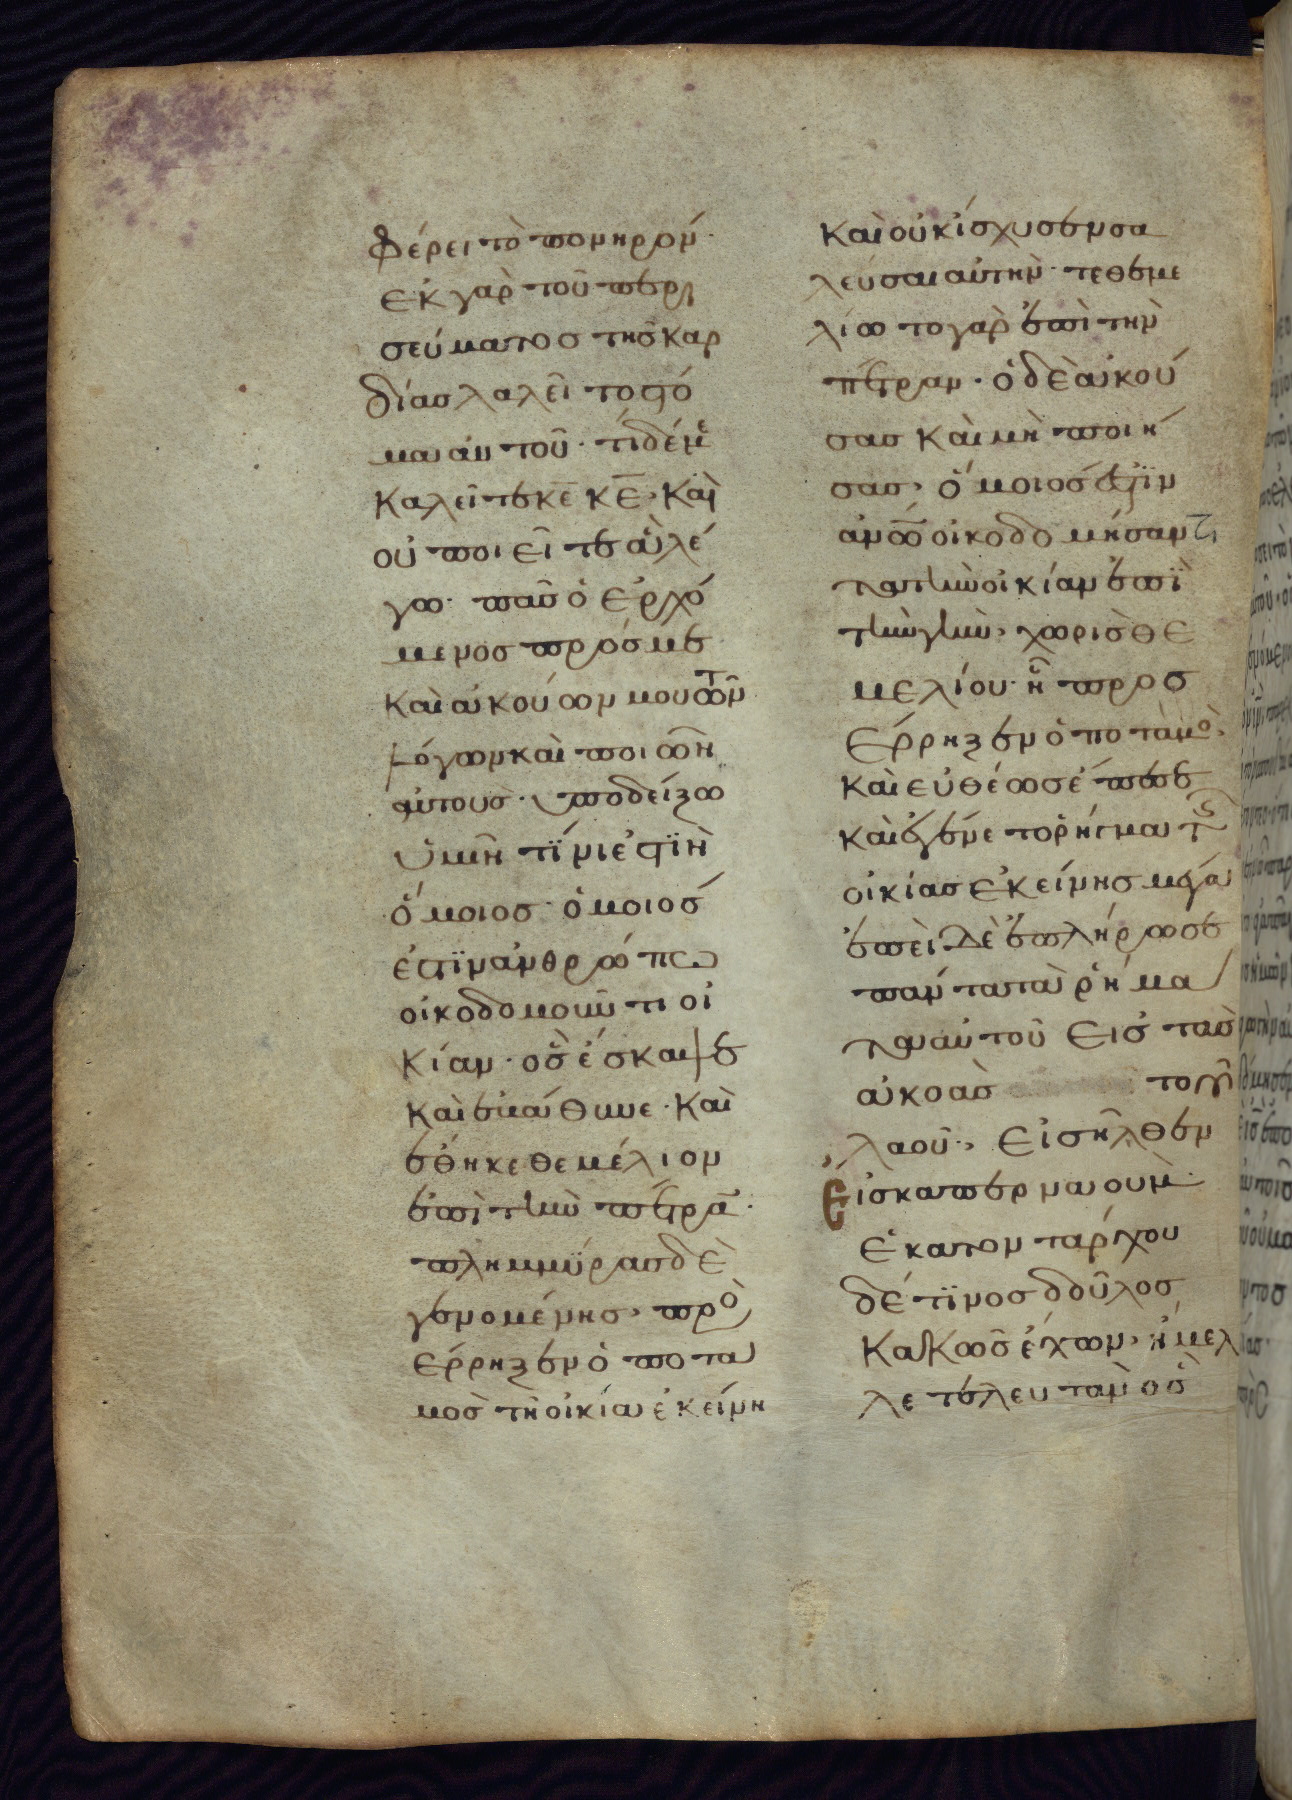 φέρει τὸ πονηρόν·
ἐκ γὰρ τοῦ περισ
σεύματος τῆς καρ
δίας λαλεῖ τὸ στό
μα αὐτοῦ· τί δέ με
καλεῖτε κ̅ε̅ κ̅ε̅· καὶ
οὐ ποιεῖτε ἃ λέ
γω· πᾶς ὁ ἐρχό
μενος πρός με
καὶ ἀκούων μου τῶν
λόγων καὶ ποιῶν
αὐτοὺς· ὑποδείξω
ὑμῖν τίνι ἐστὶν
ὅμοιος· ὅμοιός
ἐστιν ἀνθρώπω
οἰκοδομοῦντι οἰ
κίαν· ὃς ἔσκαψε
καὶ ἐβάθυνε· καὶ
ἔθηκε θεμέλιον
ἐπὶ τὴν πέτραν·
πλημμύρας δὲ
γενομένης· προσ
έρρηξεν ὁ ποτα
μὸς τῆ οἰκία ἐκείνη
καὶ οὐκ ἴσχυσεν σα
λεύσαι αὐτὴν· τεθεμε
λίωτο γὰρ ἐπὶ τὴν
πέτραν· ὁ δὲ ἀκού
σας καὶ μὴ ποιή
σας· ὅμοιός ἐστιν
ἀν̅ω̅ οἰκοδομήσαντι
τὴν οἰκίαν ἐπὶ
τὴν γὴν· χωρὶς θε
μελίου· ἧ προσ
έρρηξεν ὁ ποταμὸς·
καὶ εὐθέως ἔπεσε
καὶ ἐγένετο ῥῆγμα τῆς
οἰκίας ἐκείνης μέγα
ἐπεὶ δὲ ἐπλήρωσε
πάντα τὰ ῥήμα
τα αὐτοῦ εἰς τὰς
ἀκοὰς τοῦ
λαοῦ·, εἰσῆλθεν
εἰς καπερναούμ·
ἑκατοντάρχου
δέ τινος δοῦλος
κακῶς ἔχων· ἤμελ
λε τελευτᾶν ὃς